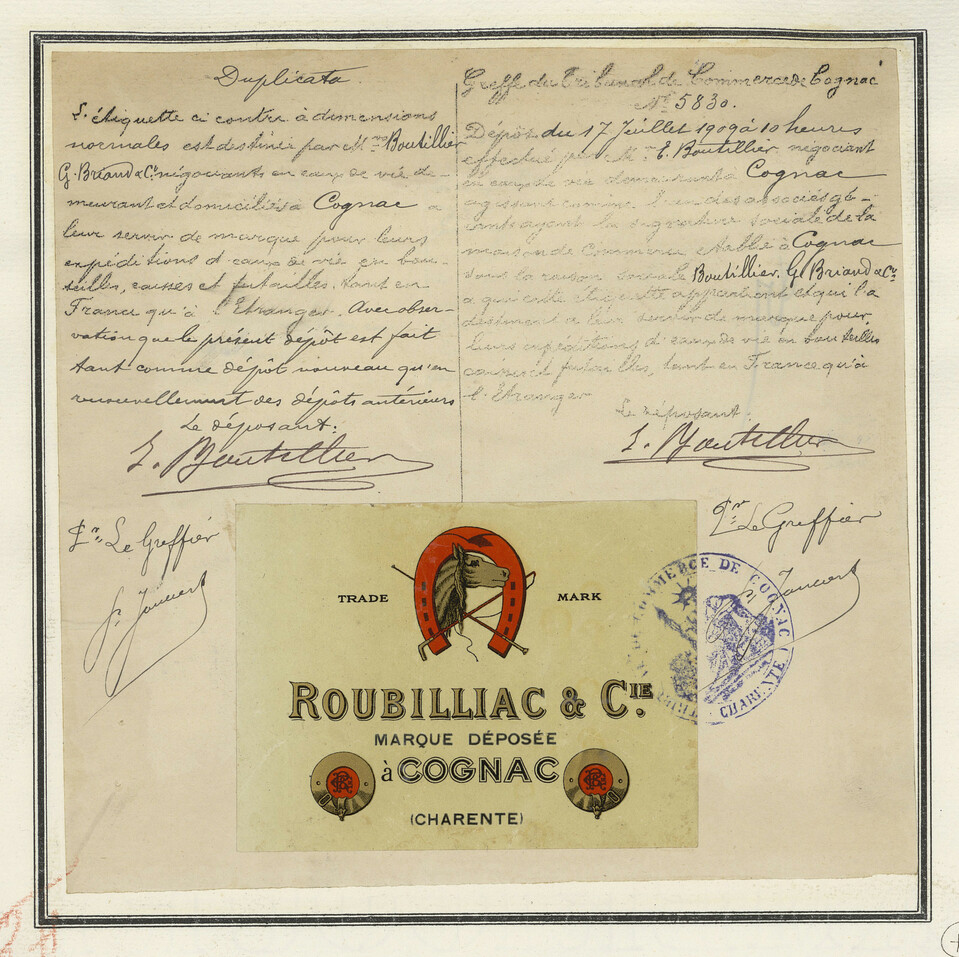 Duplicata
L'étiquette ci contre à dimensions
normales est destinée par M.rs Boutillier
G. Briand & Cie négociants en eaux de vie de-
meurant et domiciliés à Cognac a
leur servir de marque pour leurs
expéditions d'eaux de vie en bou-
teilles, caisses et futailles, tant en
France qu'à l'Etranger. Avec obser-
vation que le présent dépôt est fait
tant comme dépôt nouveau qu'en
renouvellement des dépôts antérieurs
Le déposant:
E. Boutillier
Pr. Le Greffier
Greffe du Tribunal de Commerce de Cognac
No 5830.
Dépôt du 17 Juillet 1909 à 10 heures
effectué par M.r E. Boutillier, négociant
en eaux de vie demeurant à Cognac
agissant comme l'un des associés gé-
rants ayant la signature sociale de la
maison de Commerce établie à Cognac
sous la raison sociale Boutillier, G. Briand & Cie
à qui cette étiquette appartient et qui la
destinent à leur servir de marque pour
leurs expéditions d'eaux de vie en bouteilles
caisses et futailles, tant en France qu'à
l'Etranger
Le déposant:
E. Boutillier
Pr. Le Greffier
TRADE MARK
ROUBILLIAC & CIE.
MARQUE DÉPOSÉE
à COGNAC
(CHARENTE)
COMMERCE DE COGNAC
CHARENTE